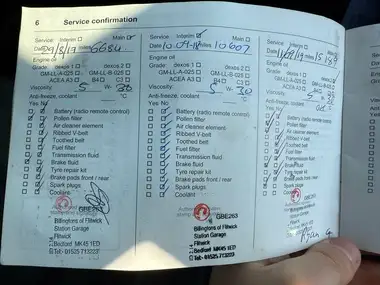 6 Service confirmation
Service: Interim Main
Date 8/17 Miles 6684
Engine oil
Grade: dexos 1 dexos 2
GM-LL-A-025 GM-LL-B-025
ACEA A3 B4 C3
Viscosity: 5 W- 30
Anti-freeze, coolant °C
Yes No
Battery (radio remote control)
Pollen filter
Air cleaner element
Ribbed V-belt
Toothed belt
Fuel filter
Transmission fluid
Brake fluid
Tyre repair kit
Brake pads front / rear
Spark plugs
Coolant
GBE263
Billingtons of Flitwick
Station Garage
Flitwick
Bedford MK45 1ED
Tel: 01525 713223
Service: Interim Main
Date Miles 10607
Engine oil
Grade: dexos 1 dexos 2
GM-LL-A-025 GM-LL-B-025
ACEA A3 B4 C3
Viscosity: 5 W- 30
Anti-freeze, coolant °C
Yes No
Battery (radio remote control)
Pollen filter
Air cleaner element
Ribbed V-belt
Toothed belt
Fuel filter
Transmission fluid
Brake fluid
Tyre repair kit
Brake pads front / rear
Spark plugs
Coolant
GBE263
Billingtons of Flitwick
Station Garage
Flitwick
Bedford MK45 1ED
Tel: 01525 713223
Service: Interim Main
Date Miles
Engine oil
Grade: dexos 1 dexos 2
GM-LL-A-025 GM-LL-B-025
ACEA A3 B4 C3
Viscosity: W-
Anti-freeze, coolant
Yes No
Battery (radio remote control)
Pollen filter
Air cleaner element
Ribbed V-belt
Toothed belt
Fuel filter
Transmission fluid
Brake fluid
Tyre repair kit
Brake pads front / rear
Spark plugs
Coolant
GBE263
Billingtons of Flitwick
Station Garage
Flitwick
Bedford MK45 1ED
Tel: 01525 713223